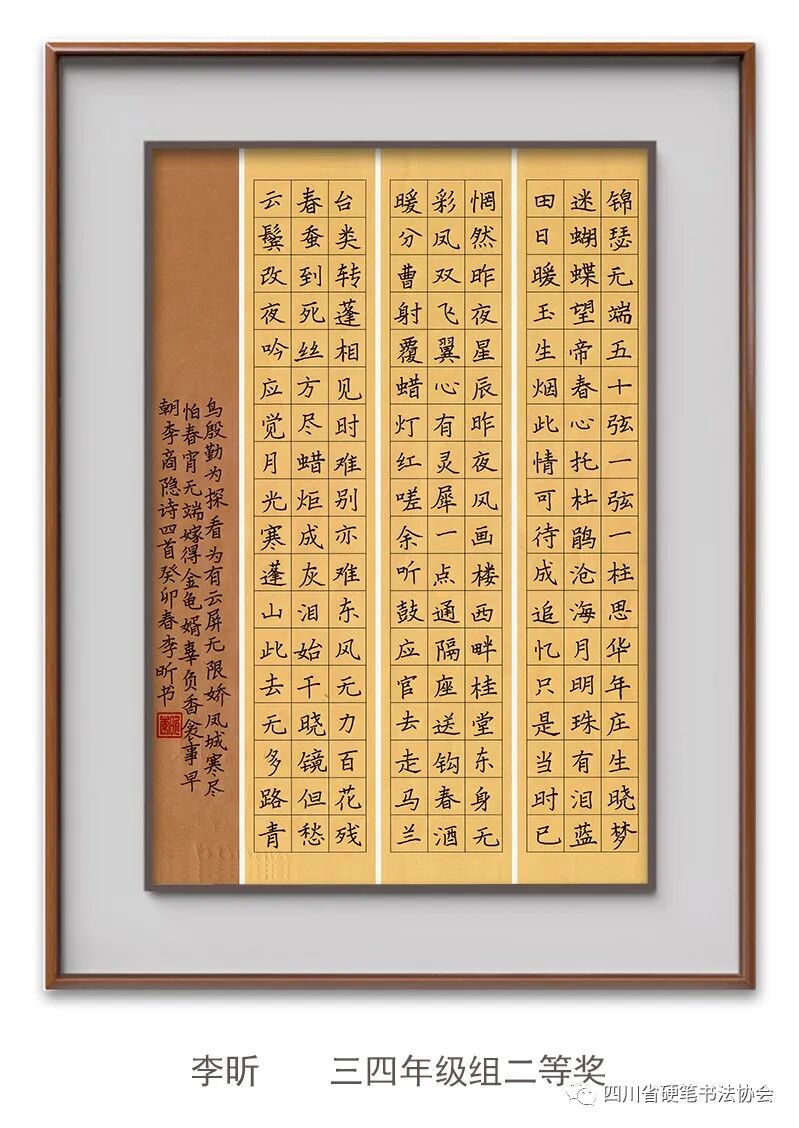 锦瑟无端五十弦一弦一柱思华年庄生晓梦
迷蝴蝶望帝春心托杜鹃沧海月明珠有泪蓝
田日暖玉生烟此情可待成追忆只是当时已
惘然昨夜星辰昨夜风画楼西畔桂堂东身无
彩凤双飞翼心有灵犀一点通隔座送钩春酒
暖分曹射覆蜡灯红嗟余听鼓应官去走马兰
台类转蓬相见时难别亦难东风无力百花残
春蚕到死丝方尽蜡炬成灰泪始干晓镜但愁
云鬓改夜吟应觉月光寒蓬山此去无多路青
鸟殷勤为探看为有云屏无限娇凤城寒尽
怕春宵无端嫁得金龟婿辜负香衾事早
朝李商隐诗四首癸卯春李昕书
李昕 三四年级组二等奖
四川省硬笔书法协会